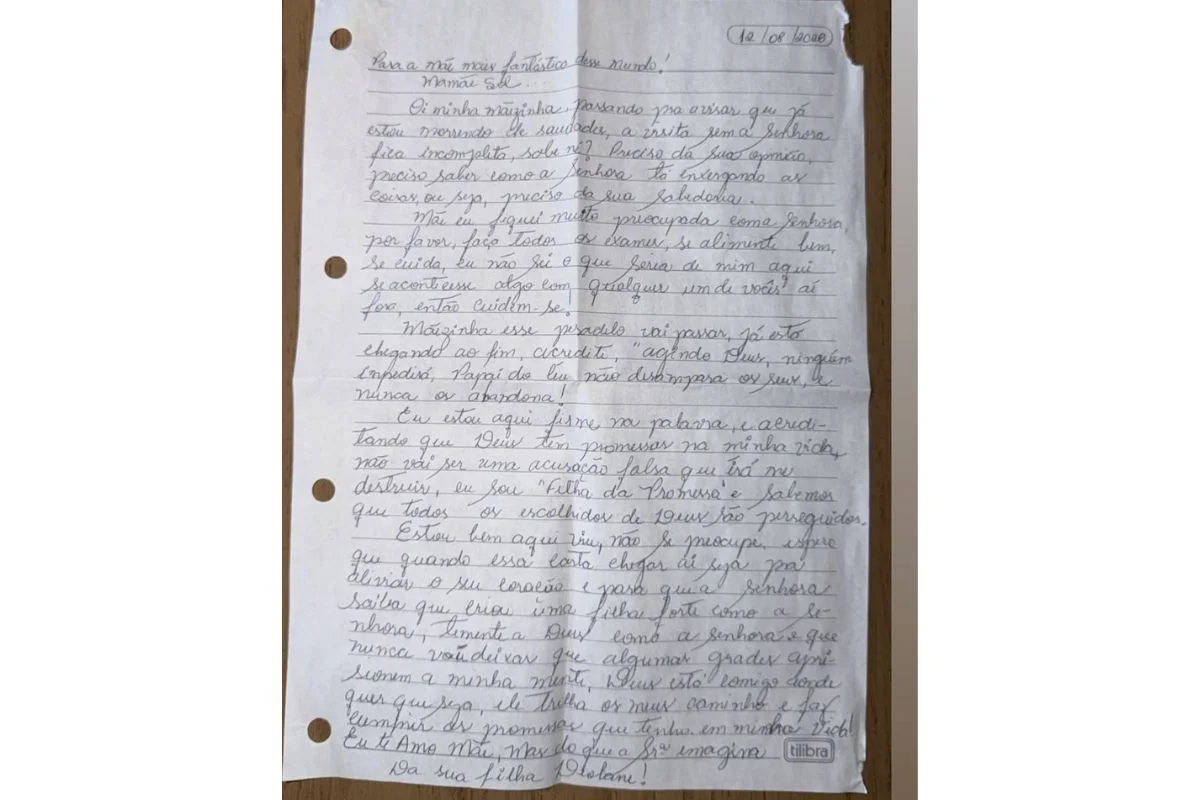 12/08/2020
Para a mãe mais fantástica desse mundo!
Mamãe Sol...
Oi minha mãizinha, passando pra avisar que já
estou morrendo de saudades, a visita sem a senhora
fica incompleta, sabe né? Preciso da sua opinião,
preciso saber como a senhora tá enxergando as
coisas, ou seja, preciso da sua sabedoria.
Mãe eu fiquei muito preocupada com a senhora,
por favor, faça todos os exames, se alimente bem,
se cuida, eu não sei o que seria de mim aqui
se acontecesse algo com qualquer um de vocês aí
fora, então cuidem-se!
Mãizinha esse pesadelo vai passar, já está
chegando ao fim, acredite, "agindo Deus, ninguém
impedirá, Papai do Céu não desampara os seus, e
nunca os abandona!
Eu estou aqui firme na palavra, e acredi-
tando que Deus tem promessas na minha vida,
não vai ser uma acusação falsa que irá me
destruir, eu sou "Filha da Promessa" e sabemos
que todos os escolhidos de Deus são perseguidos.
Estou bem aqui viu, não se preocupe, espero
que quando essa carta chegar aí seja pra
aliviar o seu coração e para que a senhora
saiba que criou uma filha forte como a se-
nhora, temente a Deus como a senhora e que
nunca vai deixar que algumas grades apri-
sionem a minha mente, Deus está comigo onde
quer que seja, ele trilha os meus caminho e faz
cumprir as promessas que tenho em minha vida!
Eu te Amo Mãe, mas do que a Srª imagina
tilibra
Da sua filha Deolane!